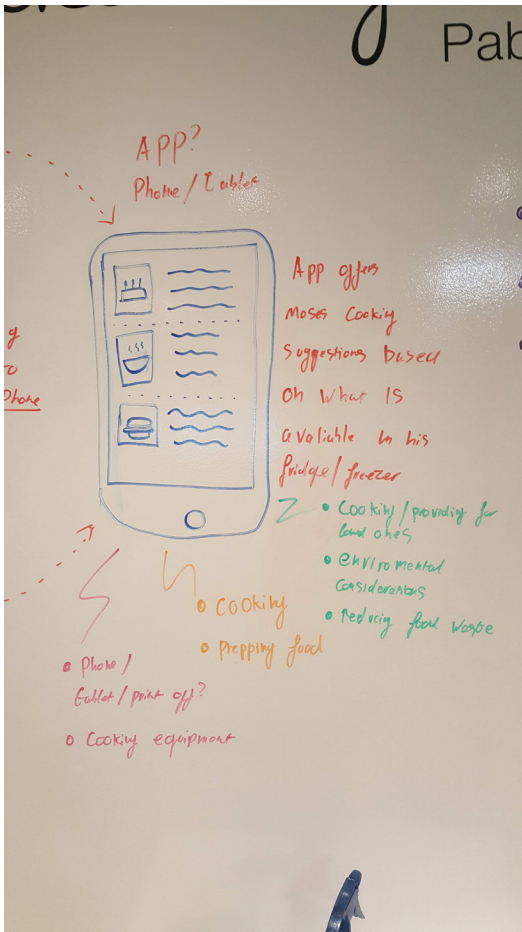 Pab
APP?
Phone / Tablet
g
to
Phone
App offers
Moses Cooking
Suggestions based
on what is
avaliable in his
fridge/freezer
• Cooking / providing for
loved ones
• enviromental
considerations
• reducing food waste
• Cooking
• prepping food
• Phone /
tablet / print off?
• Cooking equipment